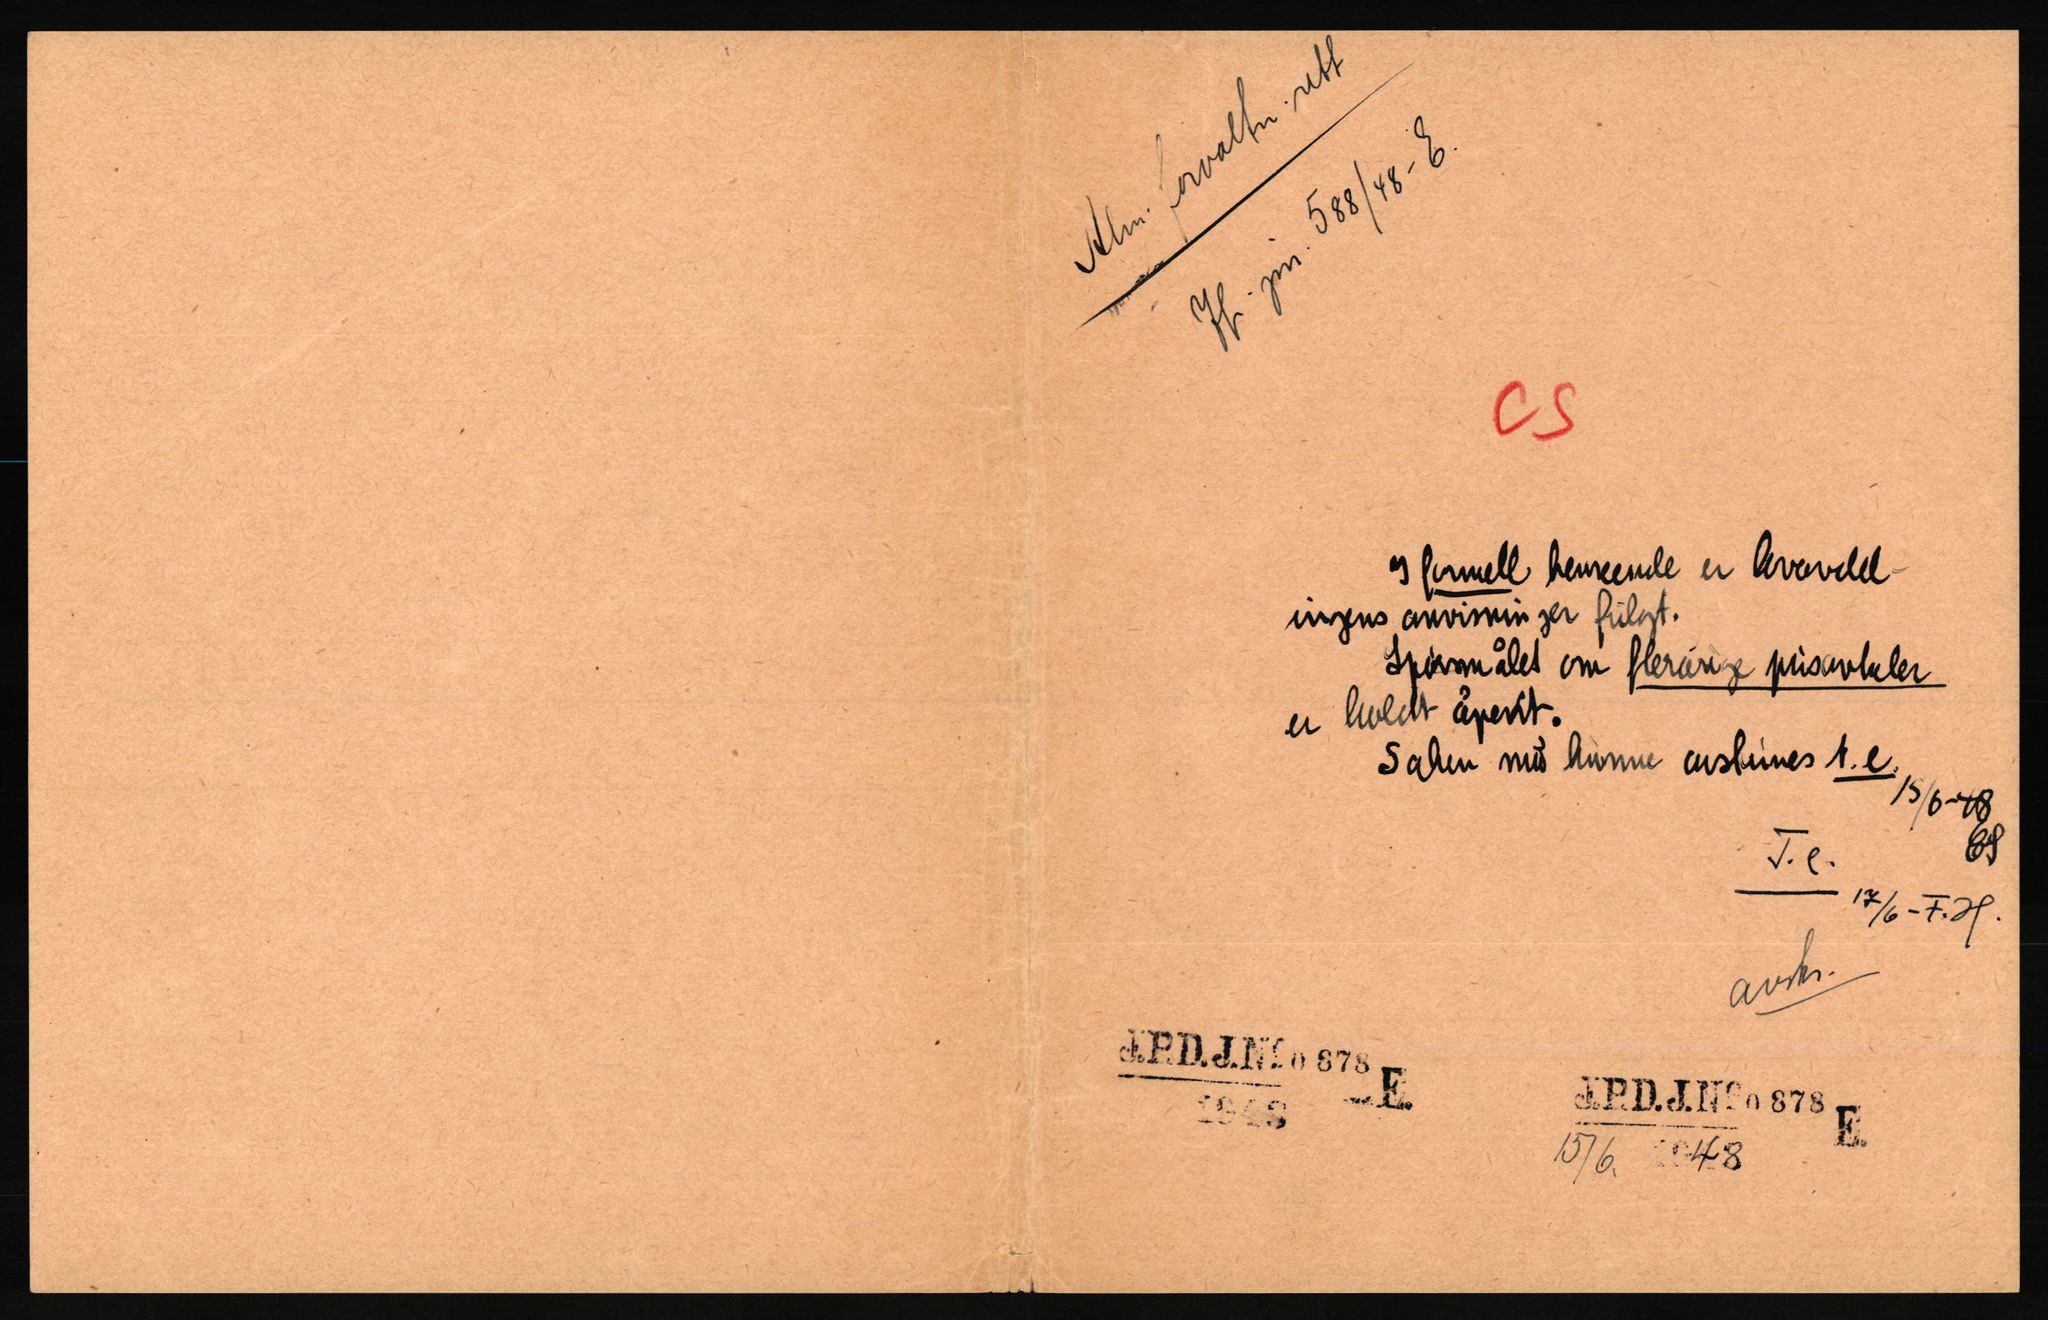 Alm. forvaltn. rett
Jfr. jnr. 588/48-E.
CS
I formell henseende er lovavdel-
ingens anvisninger fulgt.
Spørsmålet om flerårige prisavtaler
er holdt åpent.
Saken må kunne avskrives t.e.
15/6-48
T.e.
17/6-F.H.
avskr.
J.P.D.J.No 0 878
1948 E.
J.P.D.J.No 0 878
15/6. 1948 E.